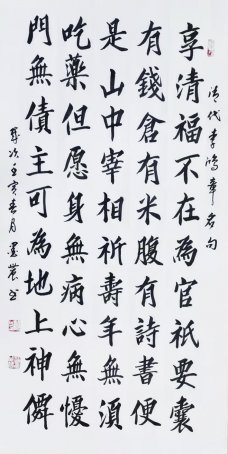 清代李鴻章名句
享清福不在為官祇要囊
有錢倉有米腹有詩書便
是山中宰相祈壽年無須
吃藥但愿身無病心無懮
門無債主可為地上神僊
歲次壬寅春月墨農書